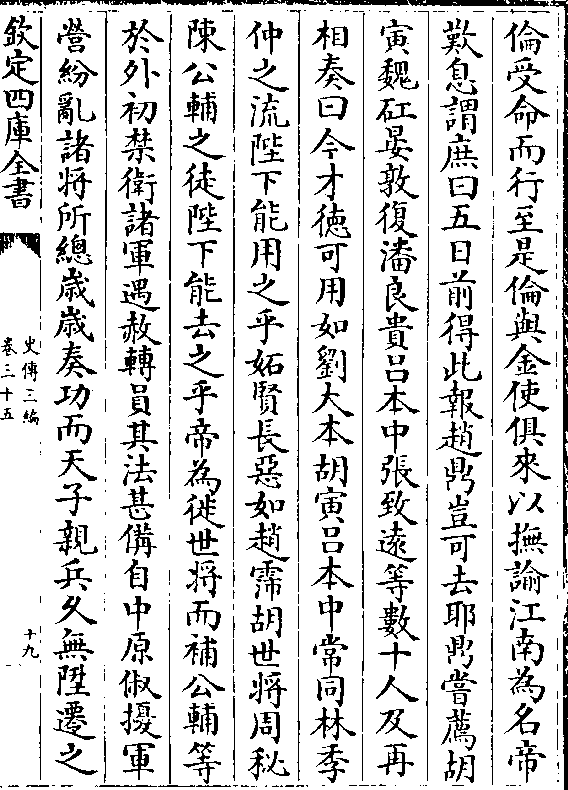 倫受命而行至是倫與金使俱來以撫諭江南為名帝
歎息謂庶曰五日前得此報趙鼎豈可去耶鼎嘗薦胡
寅魏矼晏敦復潘良貴呂本中張致遠等數十人及再
相奏曰今才徳可用如劉大本胡寅呂本中常同林季
仲之流陛下能用之乎妬賢長惡如趙霈胡世將周秘
陳公輔之徒陛下能去之乎帝為徙世將而補公輔等
於外初禁衛諸軍遇赦轉員其法甚備自中原俶擾軍
營紛亂諸將所總歲歲奏功而天子親兵久無陞遷之
欽定四庫全書
史傳三編
卷三十五
十九